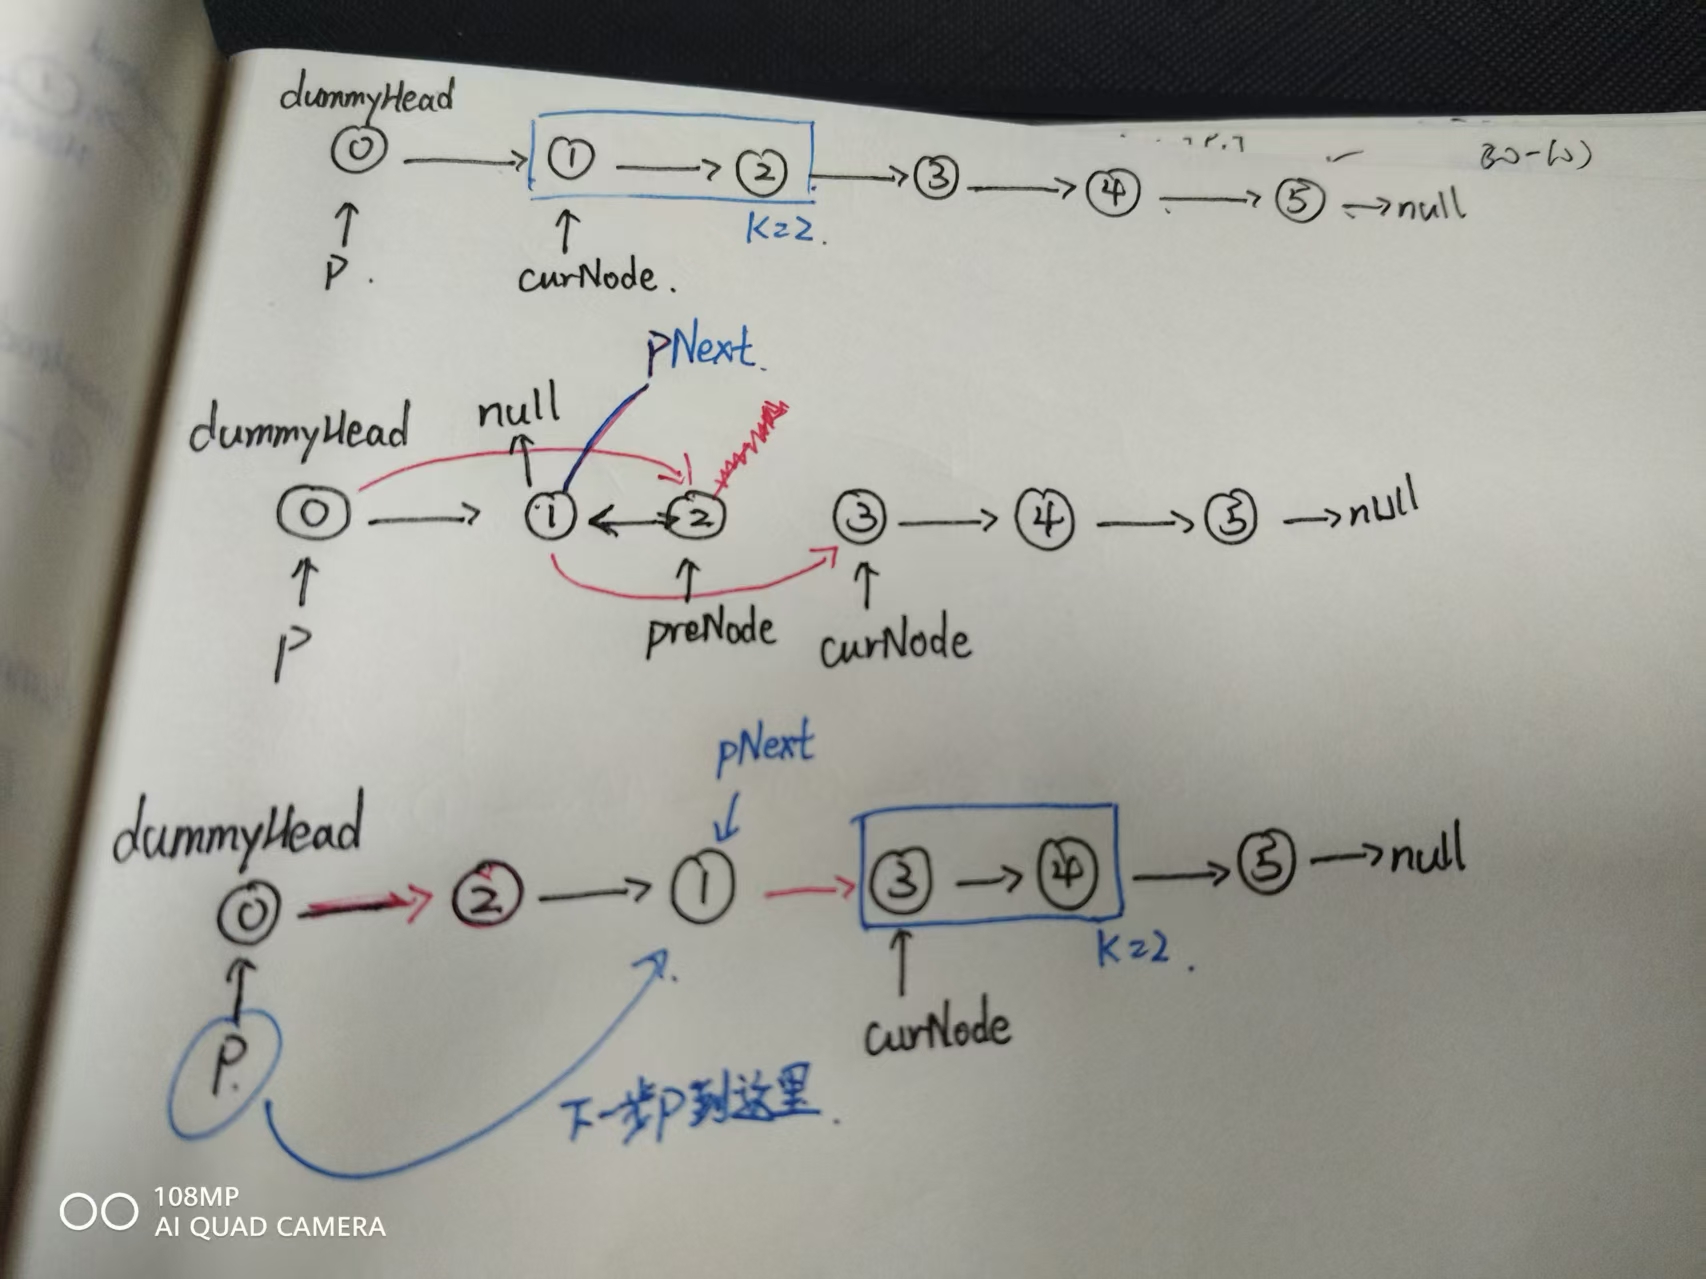 dummyHead
0 → 1 → 2 → 3 → 4 → 5 → null
K=2.
P.
curNode.
pNext.
null
dummyHead
0 → 1 ↔ 2 3 → 4 → 5 → null
P
preNode
curNode
pNext
dummyHead
0 → 2 → 1 → 3 → 4 → 5 → null
K=2.
P.
curNode
下一步P到这里.
108MP
AI QUAD CAMERA